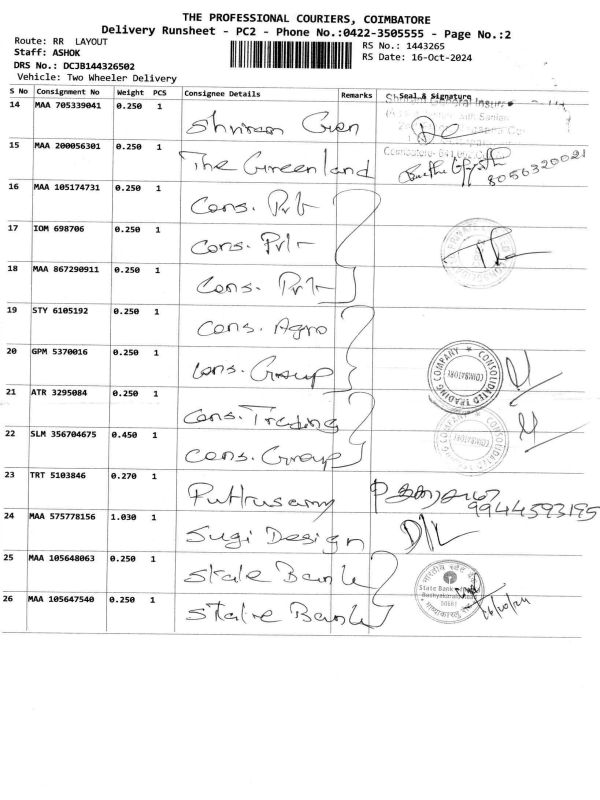 THE PROFESSIONAL COURIERS, COIMBATORE
Delivery Runsheet - PC2 - Phone No.:0422-3505555 - Page No.:2
Route: RR LAYOUT
Staff: ASHOK
DRS No.: DCJB144326502
Vehicle: Two Wheeler Delivery
RS No.: 1443265
RS Date: 16-Oct-2024
S No Consignment No Weight PCS Consignee Details Remarks Seal & Signature
14 MAA 705339041 0.250 1 Shriram Gen
15 MAA 200056301 0.250 1 The Greenland 8056320021
Coimbatore- 641
16 MAA 105174731 0.250 1 Cons. Prt
17 IOM 698706 0.250 1 Cons. Prt
18 MAA 867290911 0.250 1 Cons. Prt
19 STY 6105192 0.250 1 Cons. Agro
20 GPM 5370016 0.250 1 Cons. Group
CONSOLIDATED TRADING COMPANY
COIMBATORE
21 ATR 3295084 0.250 1 Cons. Trading
22 SLM 356704675 0.450 1 Cons. Group
23 TRT 5103846 0.270 1 Puttusamy 9944593195
24 MAA 575778156 1.030 1 Sugi Design
25 MAA 105648063 0.250 1 State Bank
26 MAA 105647540 0.250 1 State Bank
State Bank
16/10/24